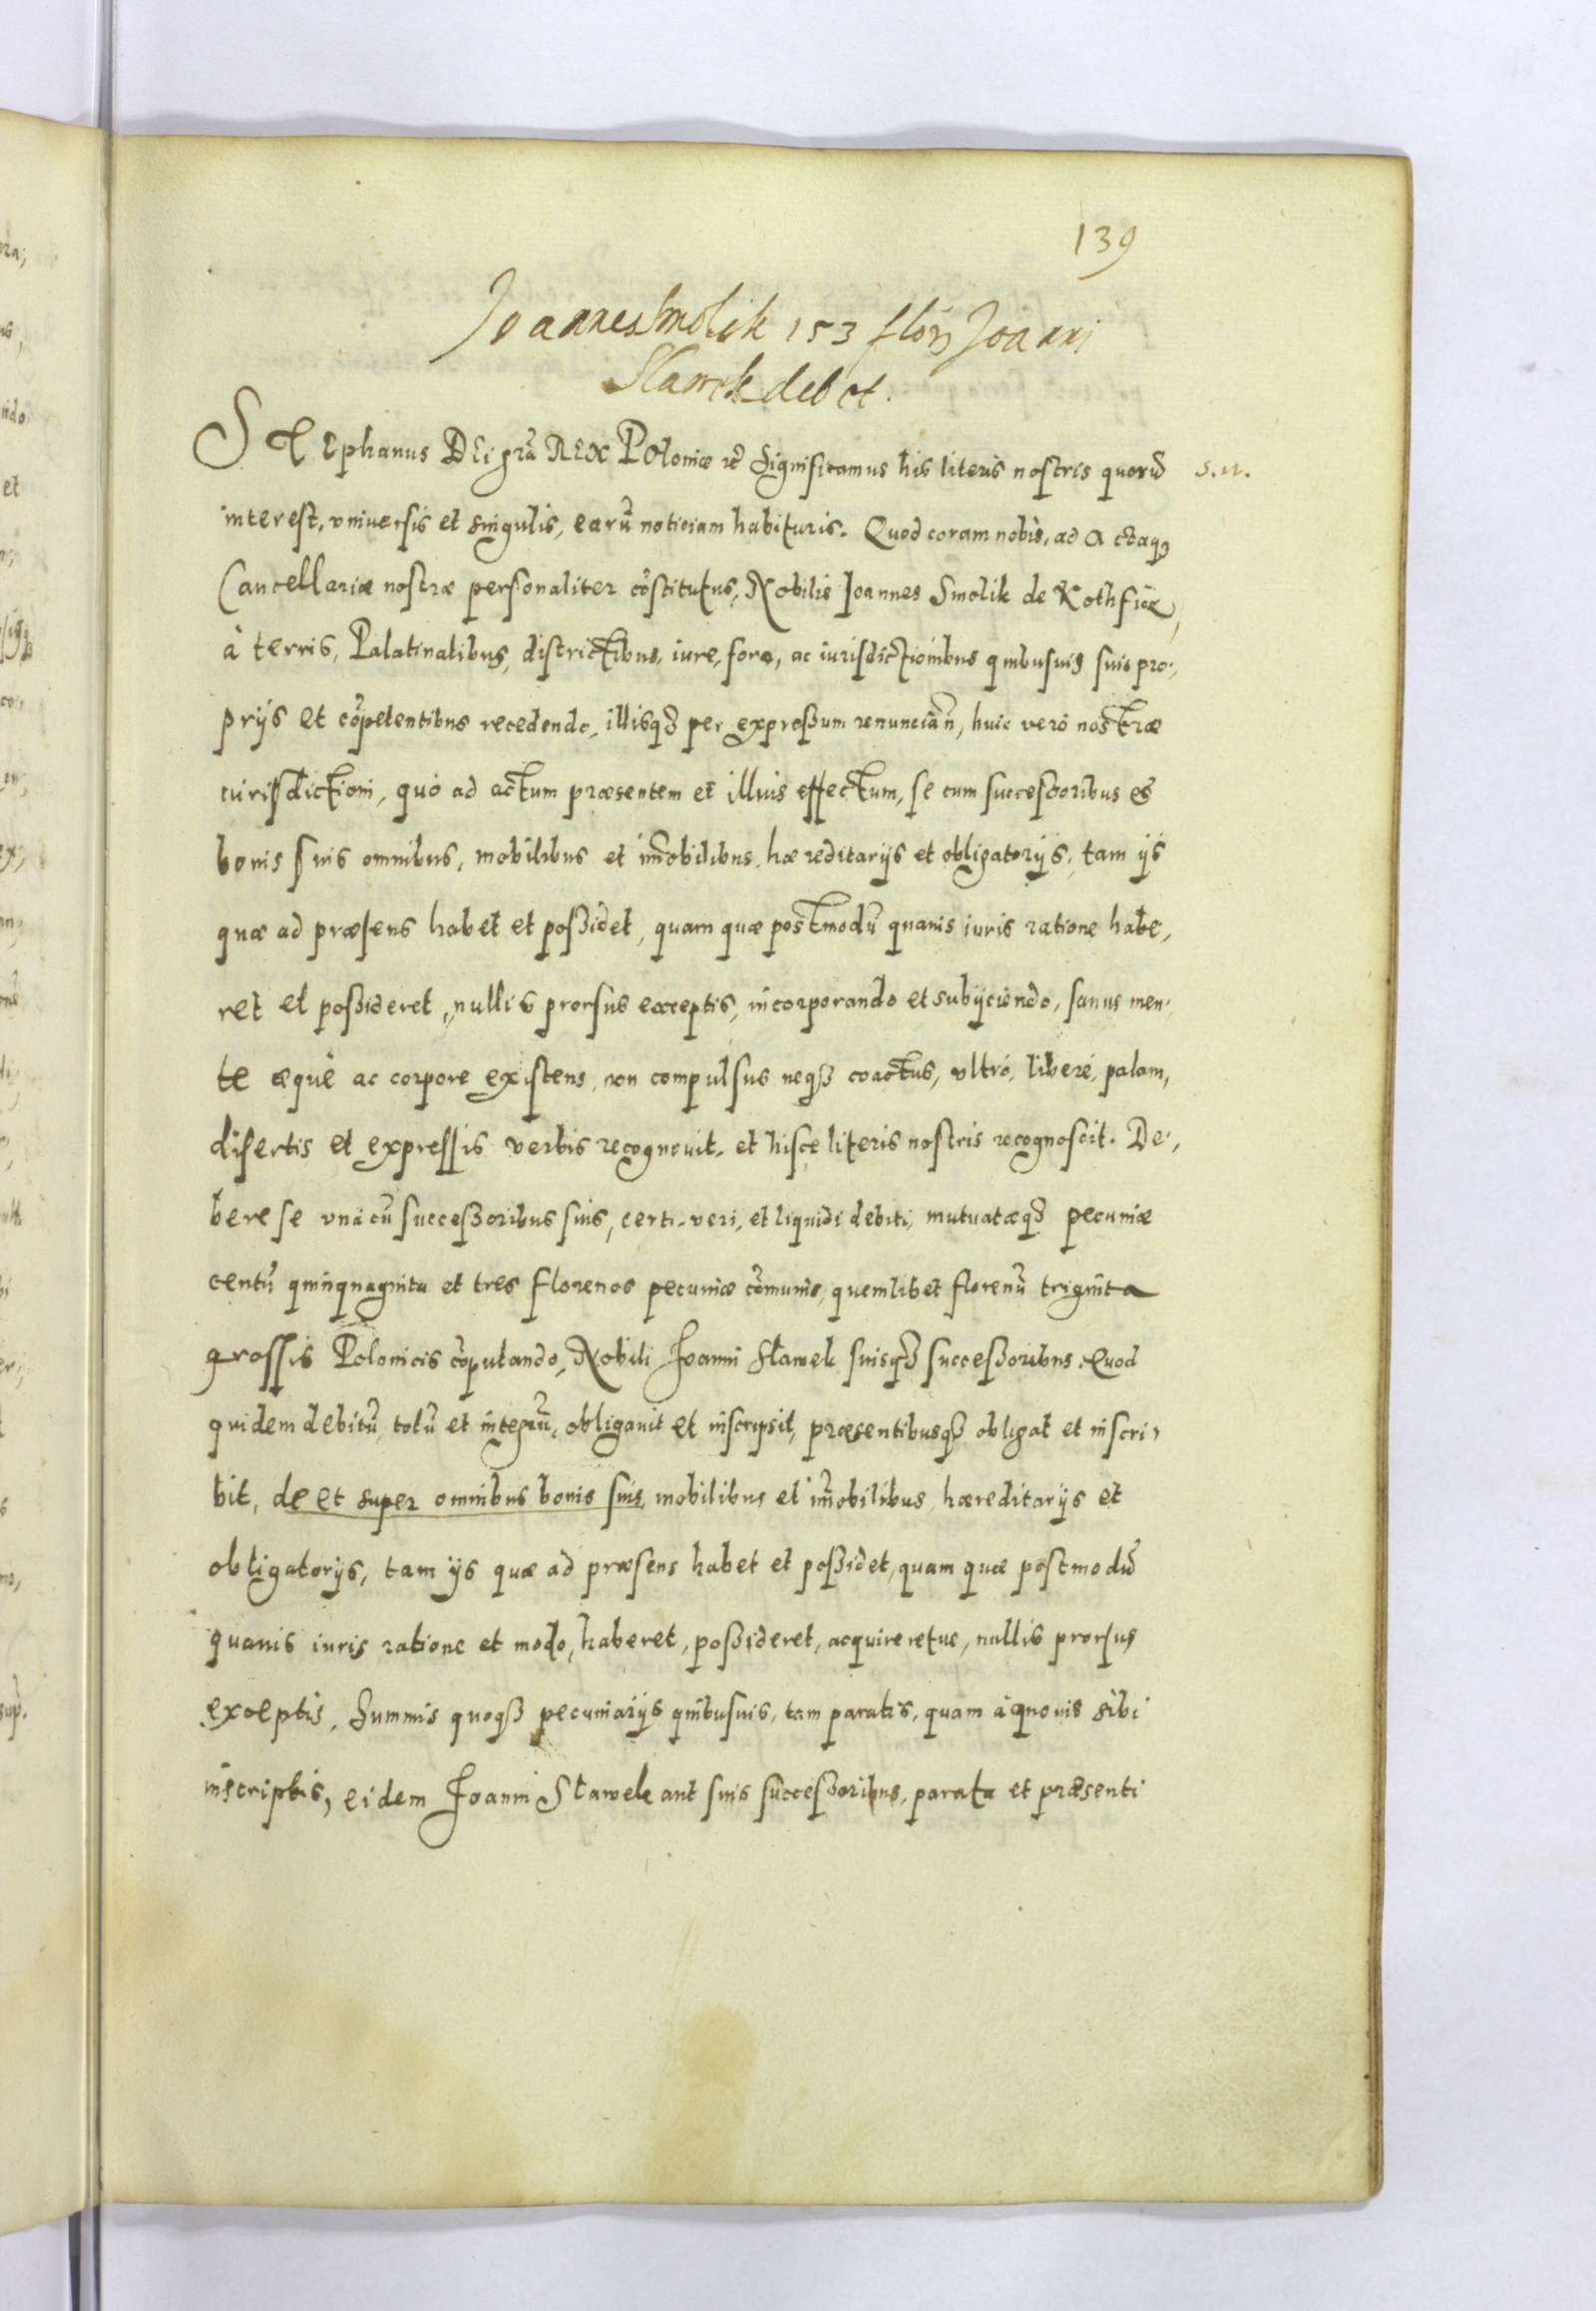 139
Joannes Smolik 153 flõr Joanni
Slawek debet.
Stephanus DEi grã REX Poloniæ rc̃ Significamus his literis nostris quorũ s.n.
interest, vniuersis et singulis, earũ noticiam habituris. Quod coram nobis, ad Actaqȝ
Cancellariæ nostræ personaliter cõstitutus, Nobilis Joannes Smolik de
à terris, Palatinatibus, districtibus, iure, foro, ac iurisdictionibus quibusuis suis pro,
prijs et cõpetentibus recedendo, illisqȝ per expreßum renuncian̄, huic verò nostræ
iurisdictioni, quò ad actum præsentem et illius effectum, se cum succeßoribus et
bonis suis omnibus, mobilibus et im̃obilibus, hæreditarijs et obligatorijs, tam ijs
quæ ad præsens habet et poßidet, quam quæ postmodũ quauis iuris ratione habe,
ret et poßideret, nullis prorsus exceptis, incorporando et subijciendo, sanus men,
te æquè ac corpore existens, non compulsus neqȝ coactus, vltrò, liberè, palam,
disertis et expressis verbis recognouit, et hisce literis nostris recognoscit. De,
bere se vnà cũ succeßoribus suis, certi, veri, et liquidi debiti, mutuatæqȝ pecuniæ
centũ quinquaginta et tres florenos pecuniæ cõmunis, quemlibet florenũ triginta
grossis Polonicis cõputando, Nobili Joanni Slawek suisqȝ succeßoribus. Quod
quidem debitũ, totũ et integrũ, obligauit et inscripsit, præsentibusqȝ obligat et inscri,
bit, de et super omnibus bonis suis, mobilibus et im̃obilibus, hæreditarijs et
obligatorijs, tam ijs quæ ad præsens habet et poßidet, quam quæ postmodũ
quauis iuris ratione et modo, haberet, poßideret, acquireretue, nullis prorsus
exceptis, Summis quoqȝ pecuniarijs quibusuis, tam paratis, quam à quouis sibi
inscriptis, eidem Joanni Slawek aut suis succeßoribus, parata et præsenti